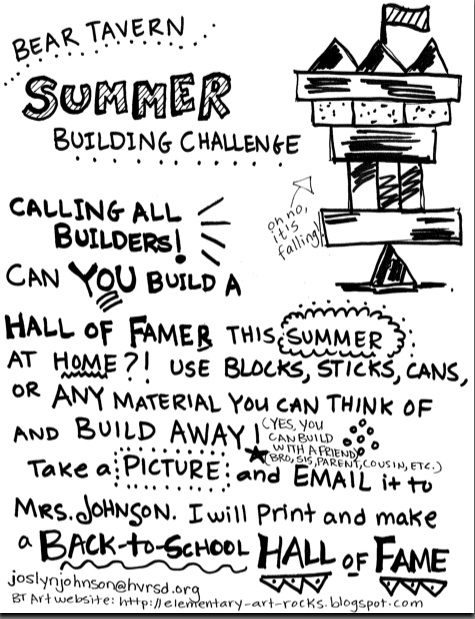 BEAR TAVERN
SUMMER
BUILDING CHALLENGE
oh no,
it's
falling!
CALLING ALL
BUILDERS!
CAN YOU BUILD A
HALL OF FAMER THIS SUMMER
AT HOME?! USE BLOCKS, STICKS, CANS,
OR ANY MATERIAL YOU CAN THINK OF
AND BUILD AWAY!
(YES, YOU
CAN BUILD
WITH A FRIEND)
(BRO, SIS, PARENT, COUSIN, ETC.)
Take a PICTURE and EMAIL it to
MRS. JOHNSON. I will Print and make
a BACK-to-SCHOOL HALL OF FAME
joslynjohnson@hvrsd.org
BT Art website: http://elementary-art-rocks.blogspot.com